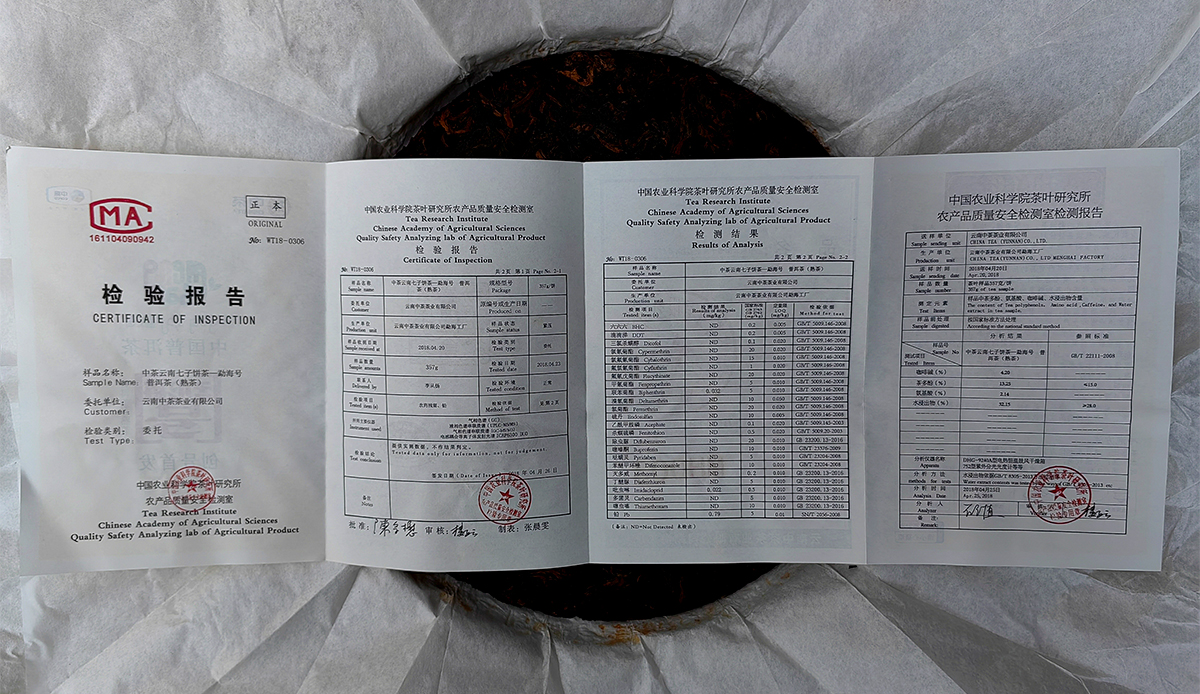 CMA
161104090942
正本
ORIGINAL
№: WT18-0306
检验报告
CERTIFICATE OF INSPECTION
样品名称: 中茶云南七子饼茶—勐海号
Sample Name 普洱茶(熟茶)
委托单位: 云南中茶茶业有限公司
Customer:
检验类别: 委托
Test Type:
中国农业科学院茶叶研究所
农产品质量安全检测室
Tea Research Institute
Chinese Academy of Agricultural Sciences
Quality Safety Analyzing lab of Agricultural Product
中国农业科学院茶叶研究所农产品质量安全检测室
Tea Research Institute
Chinese Academy of Agricultural Sciences
Quality Safety Analyzing lab of Agricultural Product
检验报告
Certificate of Inspection
№: WT18-0306 共2页 第1页 Page No. 2-1
样品名称 中茶云南七子饼茶—勐海号 普 规格型号 357g/饼
Sample name 洱茶(熟茶) Package
委托单位 云南中茶茶业有限公司
Customer Produced on
生产单位 云南中茶茶业有限公司勐海工厂 样品状态
Production unit Sample status
样品收到日期 2018.04.20 检验类别 委托
Sample received at Test type
样品数量 357g 检验日期 2018.04.23
Sample amounts Tested date
检验环境 正常
Delivered by Tested condition
检验项目 检验依据 见第2页
Tested item(s) Method of test
Instrument used
检验结论
Test conclusion Tested data only for information, not for judgement.
备注
Notes
批准: 审核: 制表: 张晨雯
中国农业科学院茶叶研究所农产品质量安全检测室
Tea Research Institute
Chinese Academy of Agricultural Sciences
Quality Safety Analyzing lab of Agricultural Product
检测结果
Results of Analysis
№: WT18-0306 共2页 第2页 Page No. 2-2
样品名称 中茶云南七子饼茶—勐海号 普洱茶(熟茶)
Sample name
委托单位 云南中茶茶业有限公司
Customer
生产单位 云南中茶茶业有限公司勐海工厂
Production unit
检测项目 检测结果 检验依据
Tested item(s) Results of analysis (mg/kg) LOQ (mg/kg) Method for test
六六六 BHC ND 0.2 0.005 GB/T 5009.146-2008
滴滴涕 DDT ND 0.2 0.005 GB/T 5009.146-2008
三氯杀螨醇 Dicofol ND 0.1 0.020 GB/T 5009.146-2008
氯氰菊酯 Cypermethrin ND 20 0.020 GB/T 5009.146-2008
氯氟氰菊酯 Cyhalothrin ND 15 0.010 GB/T 5009.146-2008
氟氯氰菊酯 Cyfluthrin ND 1 0.020 GB/T 5009.146-2008
氟氰戊菊酯 Flucythrinate ND 20 0.020 GB/T 5009.146-2008
甲氰菊酯 Fenpropethrin ND 5 0.010 GB/T 5009.146-2008
联苯菊酯 Biphenthrin 5 GB/T 5009.146-2008
溴氰菊酯 Deltamethrin ND 10 GB/T 5009.146-2008
氯菊酯 Permethrin ND 20 GB/T 5009.146-2008
硫丹 Endosulfan ND 10 GB/T 5009.146-2008
乙酰甲胺磷 Acephate ND 0.1 GB/T 5009.103-2003
杀螟硫磷 Fenitrothion ND 0.5 GB/T 5009.20-2003
除虫脲 Diflubenzuron ND 20 0.010 GB 23200.13-2016
噻嗪酮 Buprofezin ND 10 0.010 GB/T 23376-2009
哒螨灵 Pyridaben ND 5 GB/T 23204-2008
苯醚甲环唑 Difenoconazole ND 10 GB/T 23204-2008
灭多威 Methomyl ND 0.2 0.010 GB 23200.13-2016
丁醚脲 Diafenthiuron ND 5 0.010 GB 23200.13-2016
吡虫啉 Imidacloprid 0.022 0.5 0.010 GB 23200.13-2016
多菌灵 Carbendazim ND 5 0.010 GB 23200.13-2016
噻虫嗪 Thiamethoxam ND 10 0.010 GB 23200.13-2016
铅 Pb 0.79 5 0.01 SN/T 2056-2008
(备注: ND=Not Detected 未检出)
中国农业科学院茶叶研究所
农产品质量安全检测室检测报告
送样单位 云南中茶茶业有限公司
Sample sending unit CHINA TEA (YUNNAN) CO., LTD.
生产单位 云南中茶茶业有限公司勐海工厂
Production unit CHINA TEA(YUNNAN) CO., LTD MENGHAI FACTORY
送样时间 2018年04月20日
Sample sending date Apr.20, 2018
样品数量 茶叶样品357克/饼
Sample number 357g of tea sample
测定元素 样品中茶多酚、氨基酸、咖啡碱、水浸出物含量
Test Items The content of Tea polyphenols, Amino acid, Caffeine, and Water extract in tea sample.
样品前处理 按国家标准方法处理
Sample digested According to the national standard method
分析结果 参照标准
样品号 中茶云南七子饼茶—勐海号 普洱茶(熟茶) GB/T 22111-2008
Sample No
测试项目
Tested Items
咖啡碱(%) 4.20
茶多酚(%) 13.25 ≤15.0
氨基酸(%) 2.14
水浸出物(%) 32.15 ≥28.0
分析仪器名称 DHG-9240A型电热恒温鼓风干燥箱
Apparatus 752型紫外分光光度计等等
分析方法
methods for tests
分析时间 2018年04月25日
Analysis Date Apr.25, 2018
分析人
Analyst
备注:
Remark: